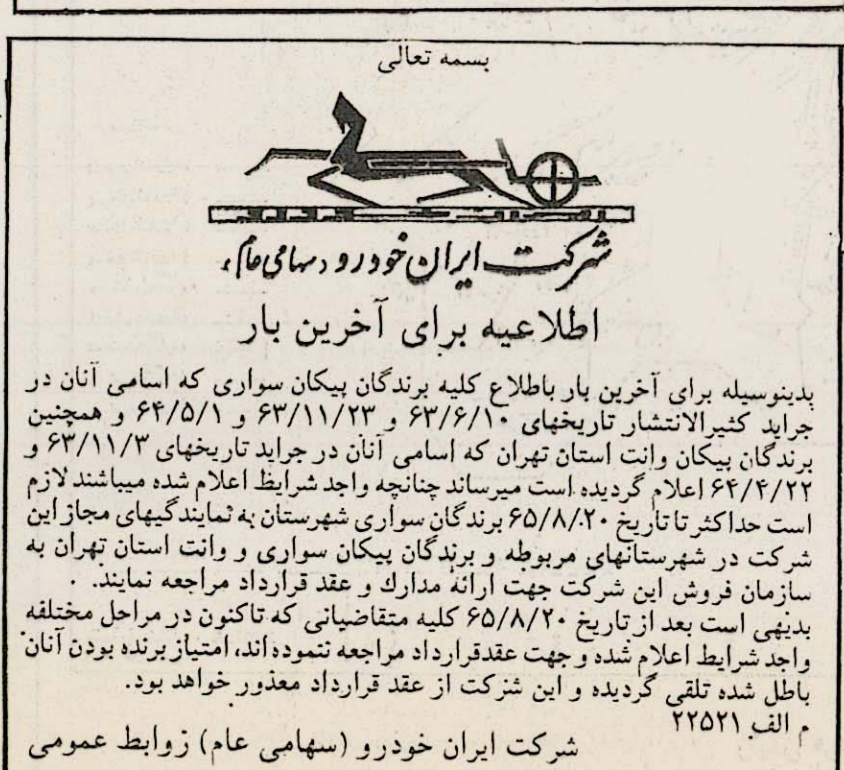 بسمه تعالی
شرکت ایران خودرو «سهامی عام»
اطلاعیه برای آخرین بار
بدینوسیله برای آخرین بار باطلاع کلیه برندگان پیکان سواری که اسامی آنان در
جراید کثیرالانتشار تاریخهای ۶۳/۶/۱۰ و ۶۳/۱۱/۲۳ و ۶۴/۵/۱ و همچنین
برندگان پیکان وانت استان تهران که اسامی آنان در جراید تاریخهای ۶۳/۱۱/۳ و
۶۴/۴/۲۲ اعلام گردیده است میرساند چنانچه واجد شرایط اعلام شده میباشند لازم
است حداکثر تا تاریخ ۶۵/۸/۲۰ برندگان سواری شهرستان به نمایندگیهای مجاز این
شرکت در شهرستانهای مربوطه و برندگان پیکان سواری و وانت استان تهران به
سازمان فروش این شرکت جهت ارائه مدارك و عقد قرارداد مراجعه نمایند.
بدیهی است بعد از تاریخ ۶۵/۸/۲۰ کلیه متقاضیانی که تاکنون در مراحل مختلفه
واجد شرایط اعلام شده و جهت عقدقرارداد مراجعه ننموده اند، امتیاز برنده بودن آنان
باطل شده تلقی گردیده و این شرکت از عقد قرارداد معذور خواهد بود.
م الف ۲۲۵۲۱
شرکت ایران خودرو (سهامی عام) روابط عمومی